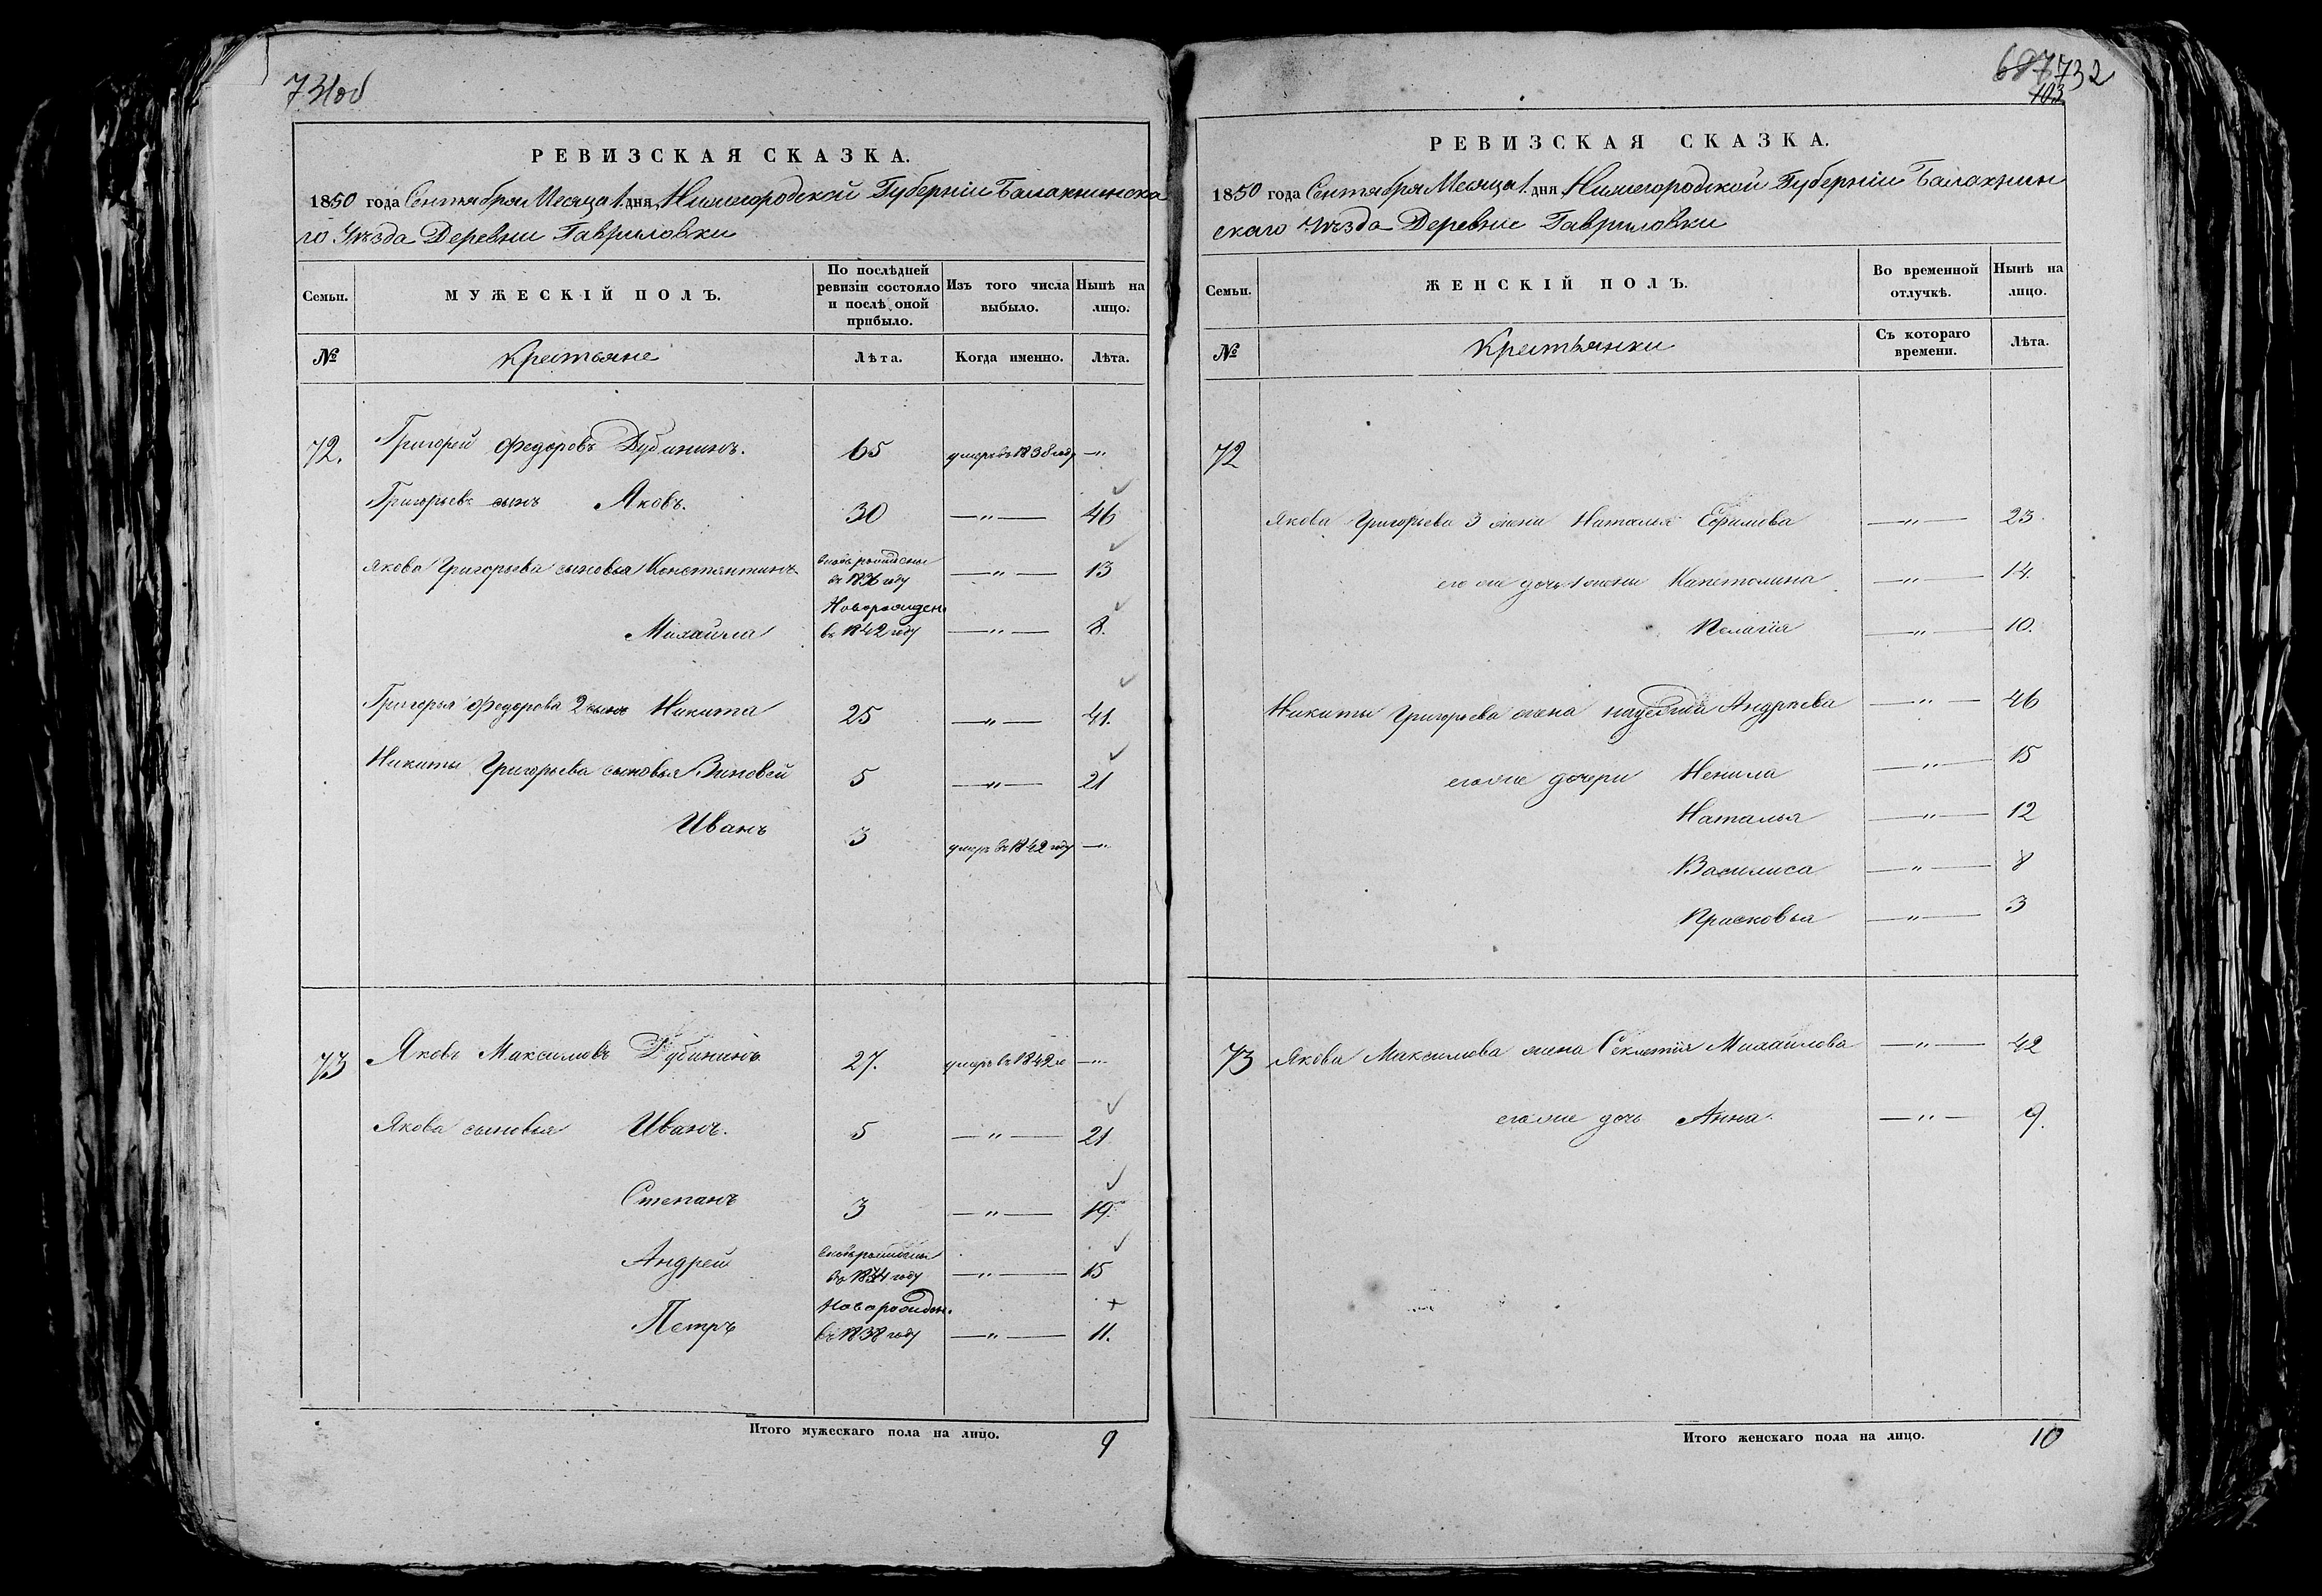 731об
РЕВИЗСКАЯ СКАЗКА.
1850 года Сентября Месяца 1. дня Нижегородской Губерніи Балахнинска
го Уѣзда Деревни Гавриловки
Семьи.
МУЖЕСКІЙ ПОЛЪ.
По послѣдней ревизіи состояло и послѣ оной прибыло.
Изъ того числа выбыло.
Нынѣ на лицо.
№
Крестьяне
Лѣта.
Когда именно.
Лѣта.
72. Григорей Федоровъ Дубининъ. 65 умеръ въ 1838 году —"
Григорьевъ сынъ Яковъ. 30 —"— 46
Якова Григорьева сыновья Константинъ
въ 1836 году —"— 13
Новорожден
Михайла въ 1842 году —"— 8.
Григорья Федорова 2 сынъ Никита 25 —"— 41.
Никиты Григорьева сыновья Зиновей 5 —"— 21
Иванъ 3 умеръ въ 1842 году —"
73 Яковъ Максимовъ Дубининъ 27. умеръ въ 1842 —"
Якова сыновья Иванъ. 5 —"— 21
Степанъ 3 —"— 19.
Андрей
году —"— 15
Новорожден.
Петръ въ 1838 году —"— 11.
Итого мужескаго пола на лицо. 9
687 732
103
РЕВИЗСКАЯ СКАЗКА.
1850 года Сентября Месяца 1. дня Нижегородской Губерніи Балахнин
скаго Уѣзда Деревни Гавриловки
Семьи.
ЖЕНСКІЙ ПОЛЪ.
Во временной отлучкѣ.
Нынѣ на лицо.
№
Крестьянки
Съ котораго времени.
Лѣта.
72
Якова Григорьева 3 жена Наталья Ефимова —"— 23
его же дочь 1 жены Капетолина —"— 14.
Пелагія —"— 10.
Никиты Григорьева жена Андреева —"— 46
его же дочери Ненила —"— 15
Наталья —"— 12
Василиса —"— 8
Прасковья —"— 3
73 Якова Максимова жена Секлетія Михайлова —"— 42
его же дочь Анна. —"— 9.
Итого женскаго пола на лицо. 10